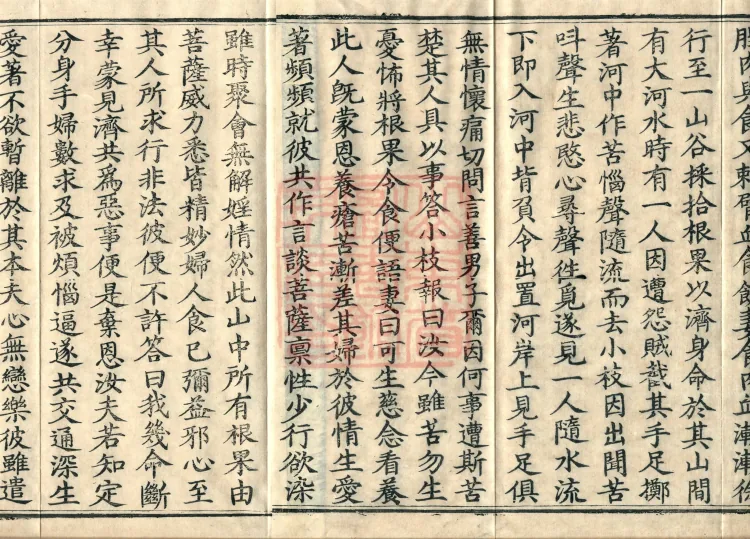 肉與食又刺臂血漸漸徐
行至一山谷採拾根果以濟身命於其山間
有大河水時有一人因遭怨賊截其手足擲
著河中作苦惱聲隨流而去小枝因出聞苦
叫聲生悲愍心尋聲徃覓遂見一人隨水流
下即入河中背負令出置河岸上見手足俱
無情懷痛切問言善男子爾因何事遭斯苦
楚其人具以事答小枝報曰汝今雖苦勿生
憂怖將根果令食便語妻曰可生慈念看養
此人旣蒙恩養瘡苦漸差其婦於彼情生愛
著頻頻就彼共作言談菩薩禀性少行欲染
雖時聚會無解婬情然此山中所有根果由
菩薩威力悉皆精妙婦人食已彌益邪心至
其人所求行非法彼便不許答曰我幾命斷
幸蒙見濟共爲惡事便是棄恩汝夫若知定
分身手婦數求及被煩惱逼遂共交通深生
愛著不欲暫離於其本夫心無戀樂彼雖遣